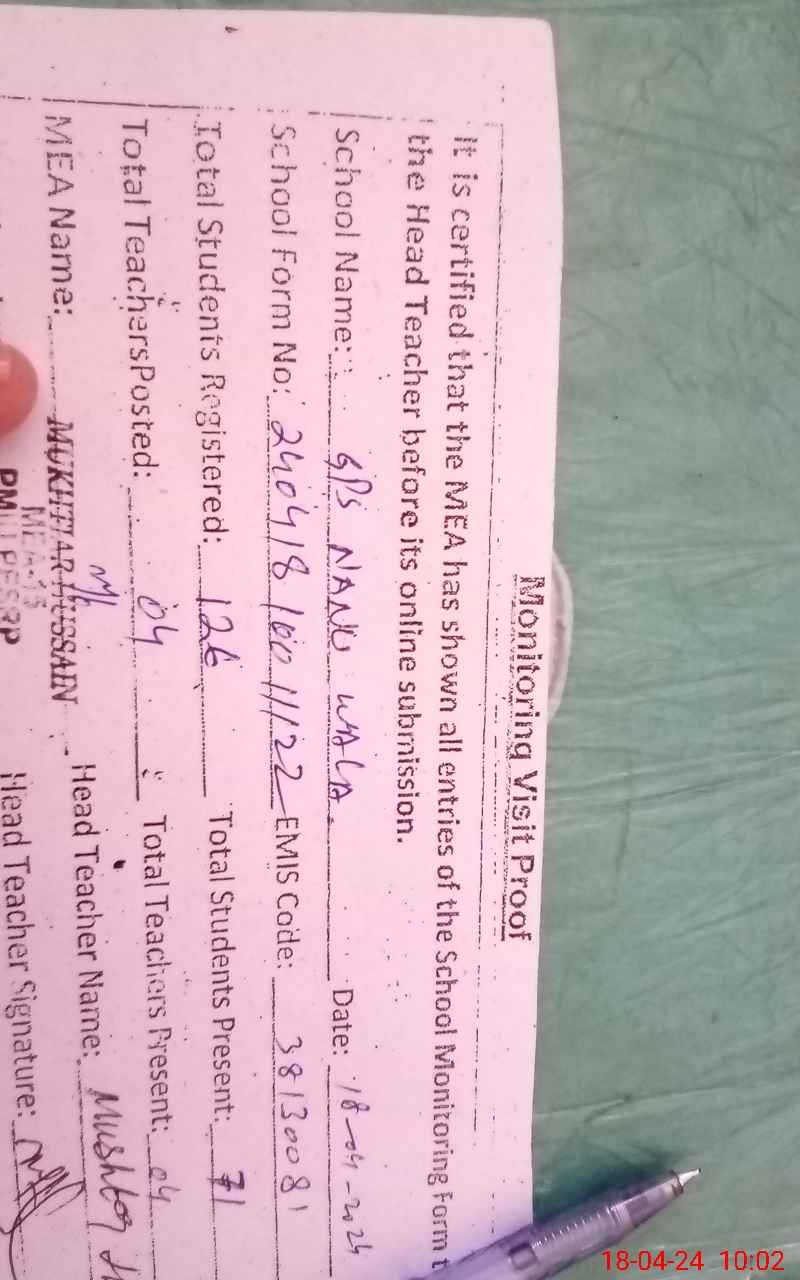 Monitoring Visit Proof
It is certified that the MEA has shown all entries of the School Monitoring Form t
the Head Teacher before its online submission.
School Name: GPS NANU WALA. Date: 18-04-2024
School Form No: 240418100 11122 EMIS Code: 38130081
Total Students Registered: 126 Total Students Present: 71
Total Teachers Posted: 04 Total Teachers Present: 04
MEA Name: MUKHTIAR HUSSAIN Head Teacher Name: Mushtaq
MEA-13
Head Teacher Signature:
18-04-24 10:02